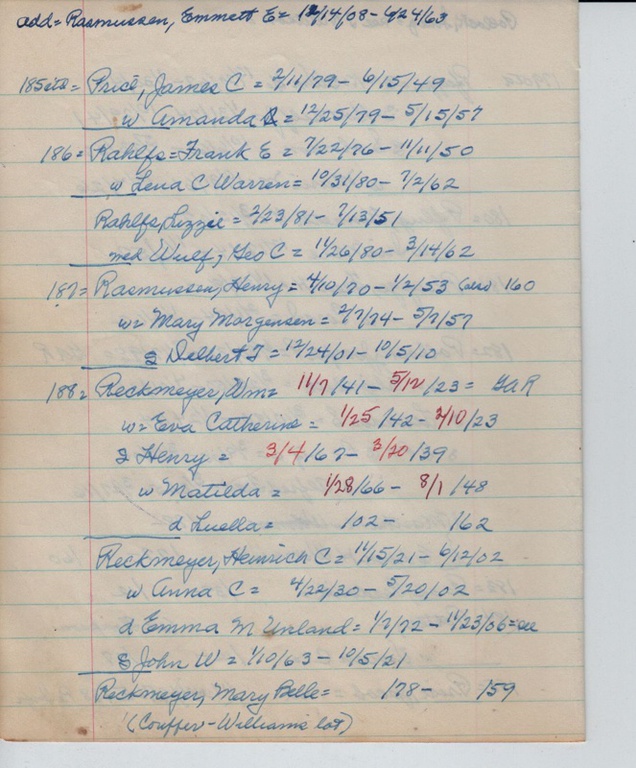 add = Rasmussen, Emmett E = 12/14/08 - 6/24/63
185 = Price, James C = 2/11/79 - 6/15/49
w Amanda = 12/25/79 - 5/15/57
186 = Rahlfs = Frank E = 7/22/76 - 11/11/50
w Lena C Warren = 10/31/80 - 7/2/62
Rahlfs, Lizzie = 2/23/81 - 7/13/51
Wulf, Geo C = 11/26/80 - 3/14/62
187 = Rasmussen, Henry = 4/10/70 - 1/2/53 160
w = Mary Morgensen = 2/7/74 - 5/7/57
s Delbert T = 12/24/01 - 10/5/10
188 = Reckmeyer, Wm = 11/7/41 - 5/12/23 = GAR
w = Eva Catherine = 1/25/42 - 2/10/23
s Henry = 3/4/67 - 3/20/39
w Matilda = 1/28/66 - 8/1/48
d Luella = 102 - 162
Reckmeyer, Heinrich C = 11/15/21 - 6/12/02
w Anna C = 4/22/30 - 5/20/02
d Emma M Unland = 1/7/72 - 11/23/06 =
s John W = 1/10/63 - 10/5/21
Reckmeyer, Mary Belle = 178 - 159
(Couffer - Williams lot)